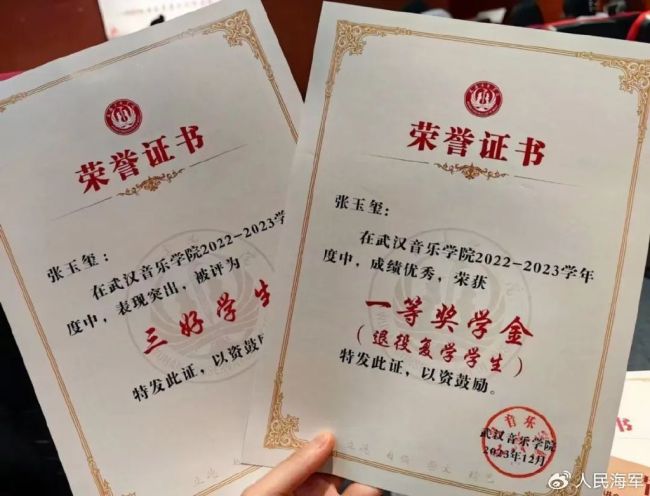 荣誉证书
张玉玺：
在武汉音乐学院2022-2023学
度中，表现突出，被评为
三好学生
特发此证，以资鼓励
荣誉证书
张玉玺：
在武汉音乐学院2022-2023学年
度中，成绩优秀，荣获
一等奖学金
（退役复学学生）
特发此证，以资鼓励。
武汉音乐学院
2023年12月
证书
人民海军